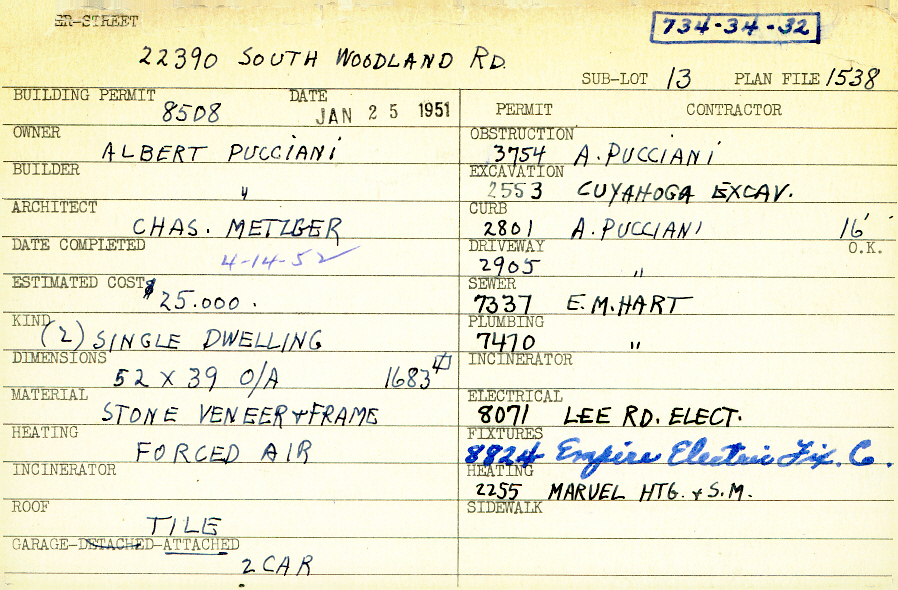 ER-STREET
734-34-32
22390 SOUTH WOODLAND RD.
SUB-LOT 13 PLAN FILE 1538
BUILDING PERMIT 8508 DATE JAN 25 1951
PERMIT CONTRACTOR
OWNER ALBERT PUCCIANI
BUILDER "
ARCHITECT CHAS. METZGER
DATE COMPLETED 4-14-52
ESTIMATED COST $25.000.
KIND (2) SINGLE DWELLING
DIMENSIONS 52 X 39 O/A 1683
MATERIAL STONE VENEER + FRAME
HEATING FORCED AIR
INCINERATOR
ROOF TILE
GARAGE-DETACHED-ATTACHED 2 CAR
OBSTRUCTION 3754 A. PUCCIANI
EXCAVATION 2553 CUYAHOGA EXCAV.
CURB 2801 A. PUCCIANI 16'
DRIVEWAY 2905 " O.K.
SEWER 7337 E.M. HART
PLUMBING 7470 "
INCINERATOR
ELECTRICAL 8071 LEE RD. ELECT.
FIXTURES 8824 Empire Electric Fix. Co.
HEATING 2255 MARVEL HTG. + S.M.
SIDEWALK